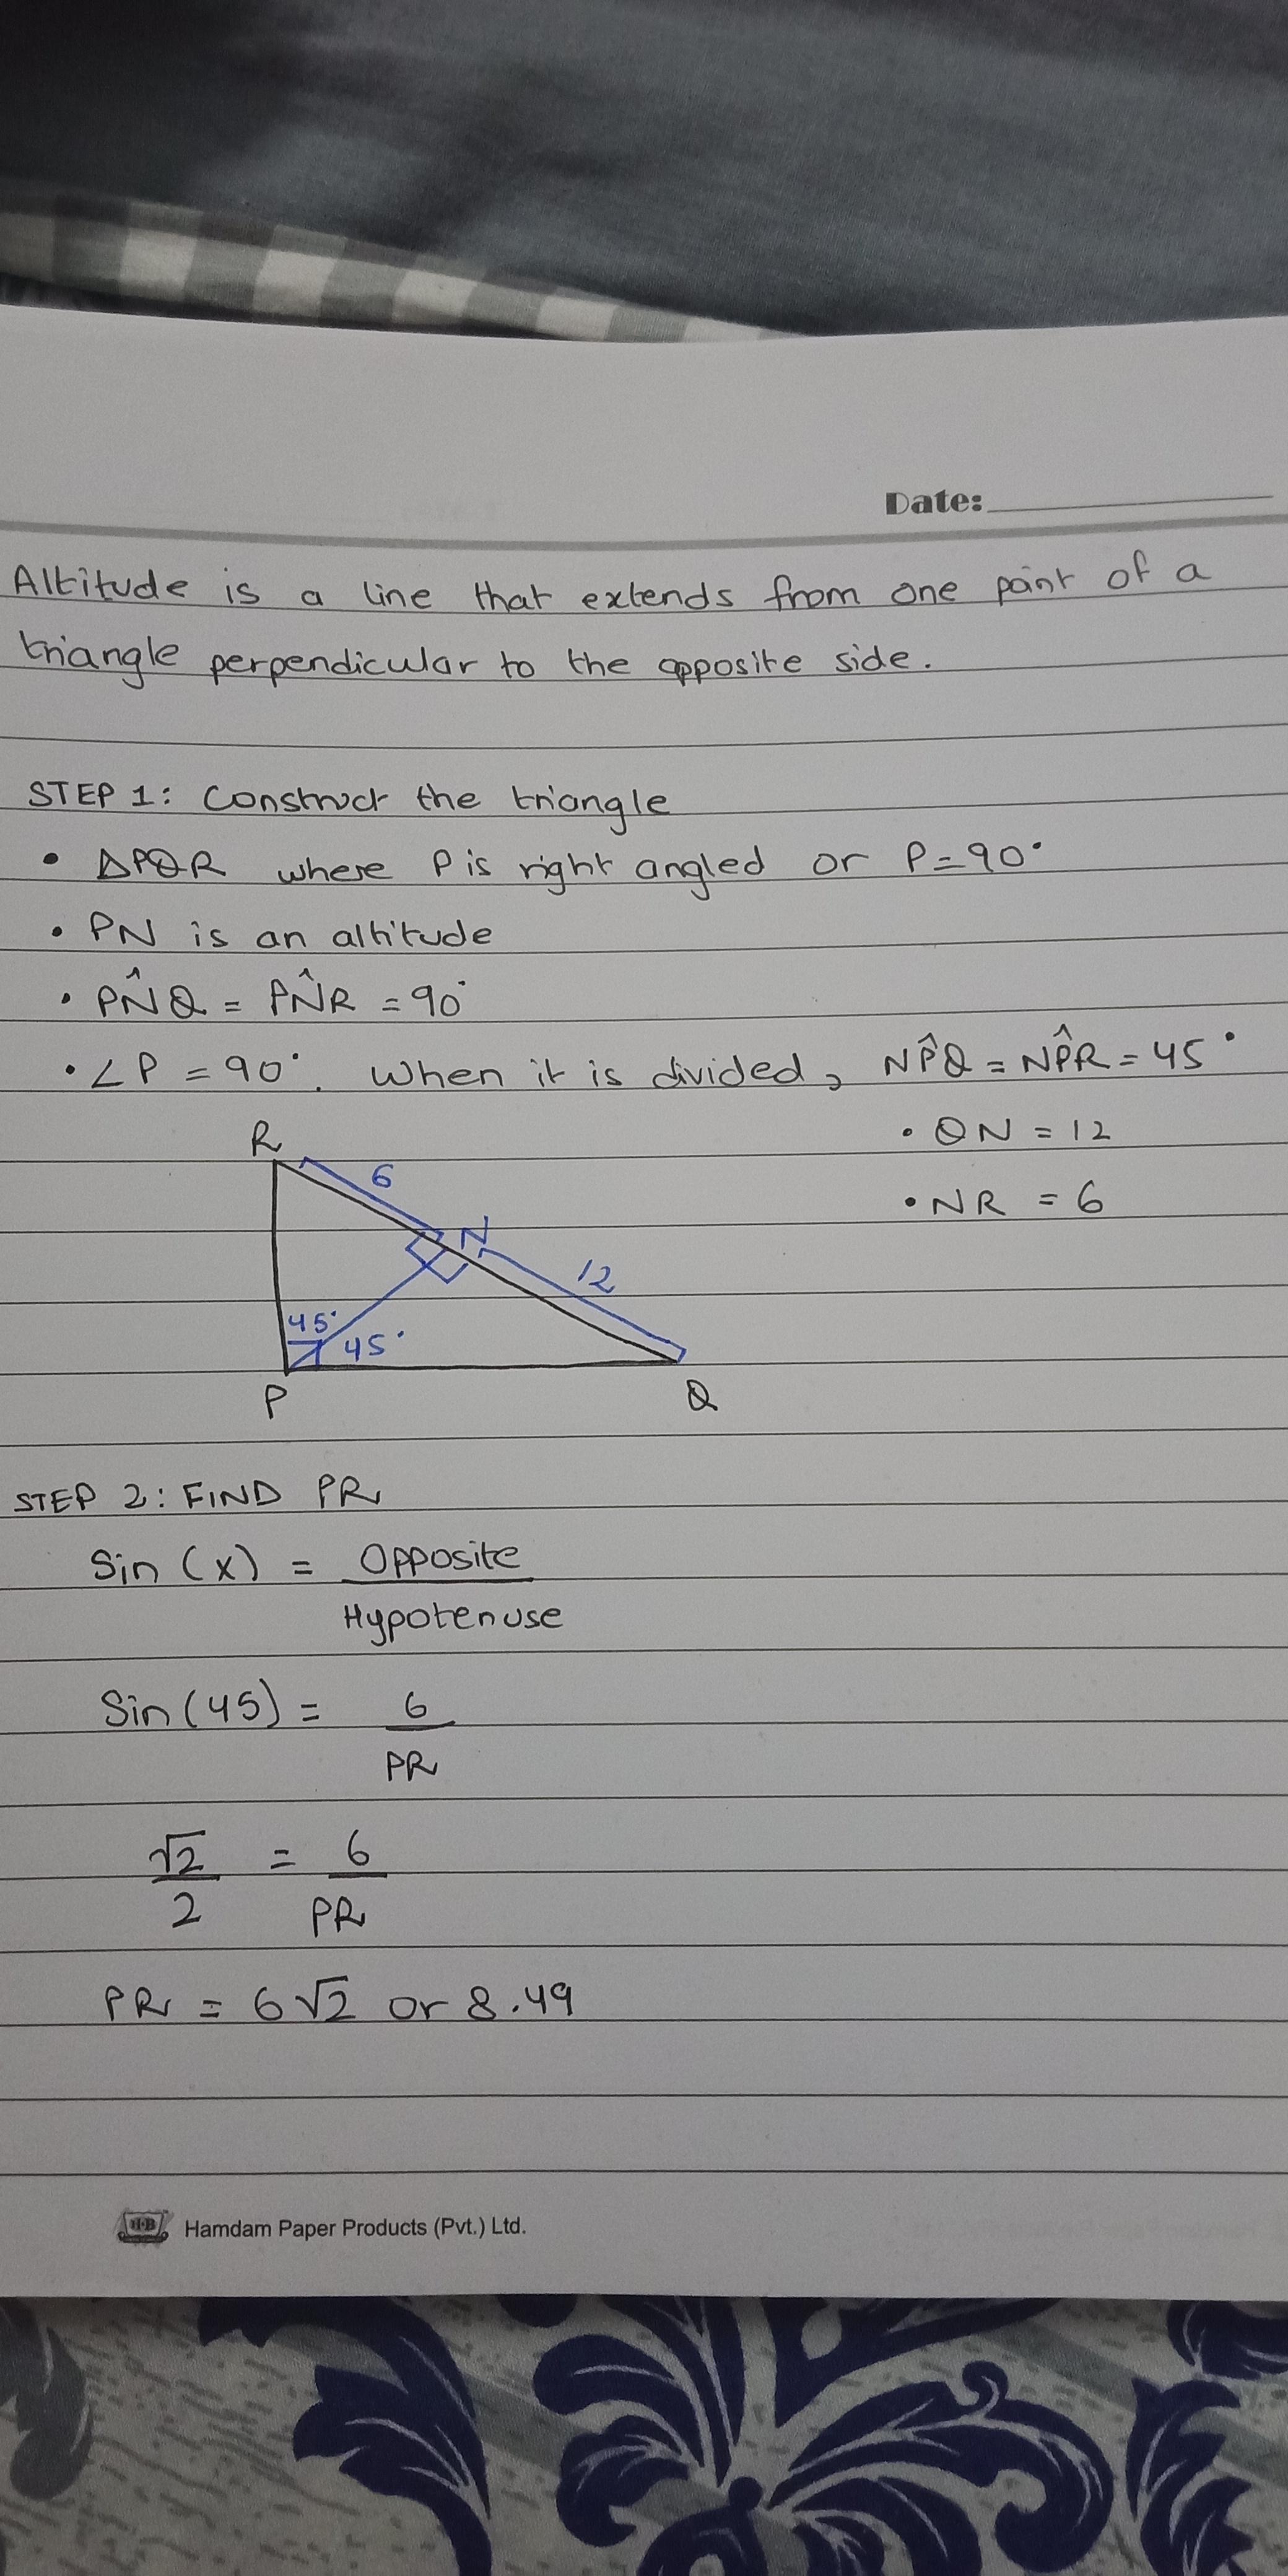 Date:
Altitude is a line that extends from one point of a
triangle perpendicular to the opposite side.
STEP 1: Construct the triangle
• △PQR where P is right angled or P=90°
• PN is an altitude
• PN̂Q = PN̂R = 90°
• ∠P = 90°. When it is divided, NP̂Q = NP̂R = 45°
• QN = 12
• NR = 6
R
6
N
12
45°
45°
P
Q
STEP 2: FIND PR
Sin (x) = Opposite
Hypotenuse
Sin (45) = 6
PR
√2 = 6
2 PR
PR = 6√2 or 8.49
HB Hamdam Paper Products (Pvt.) Ltd.